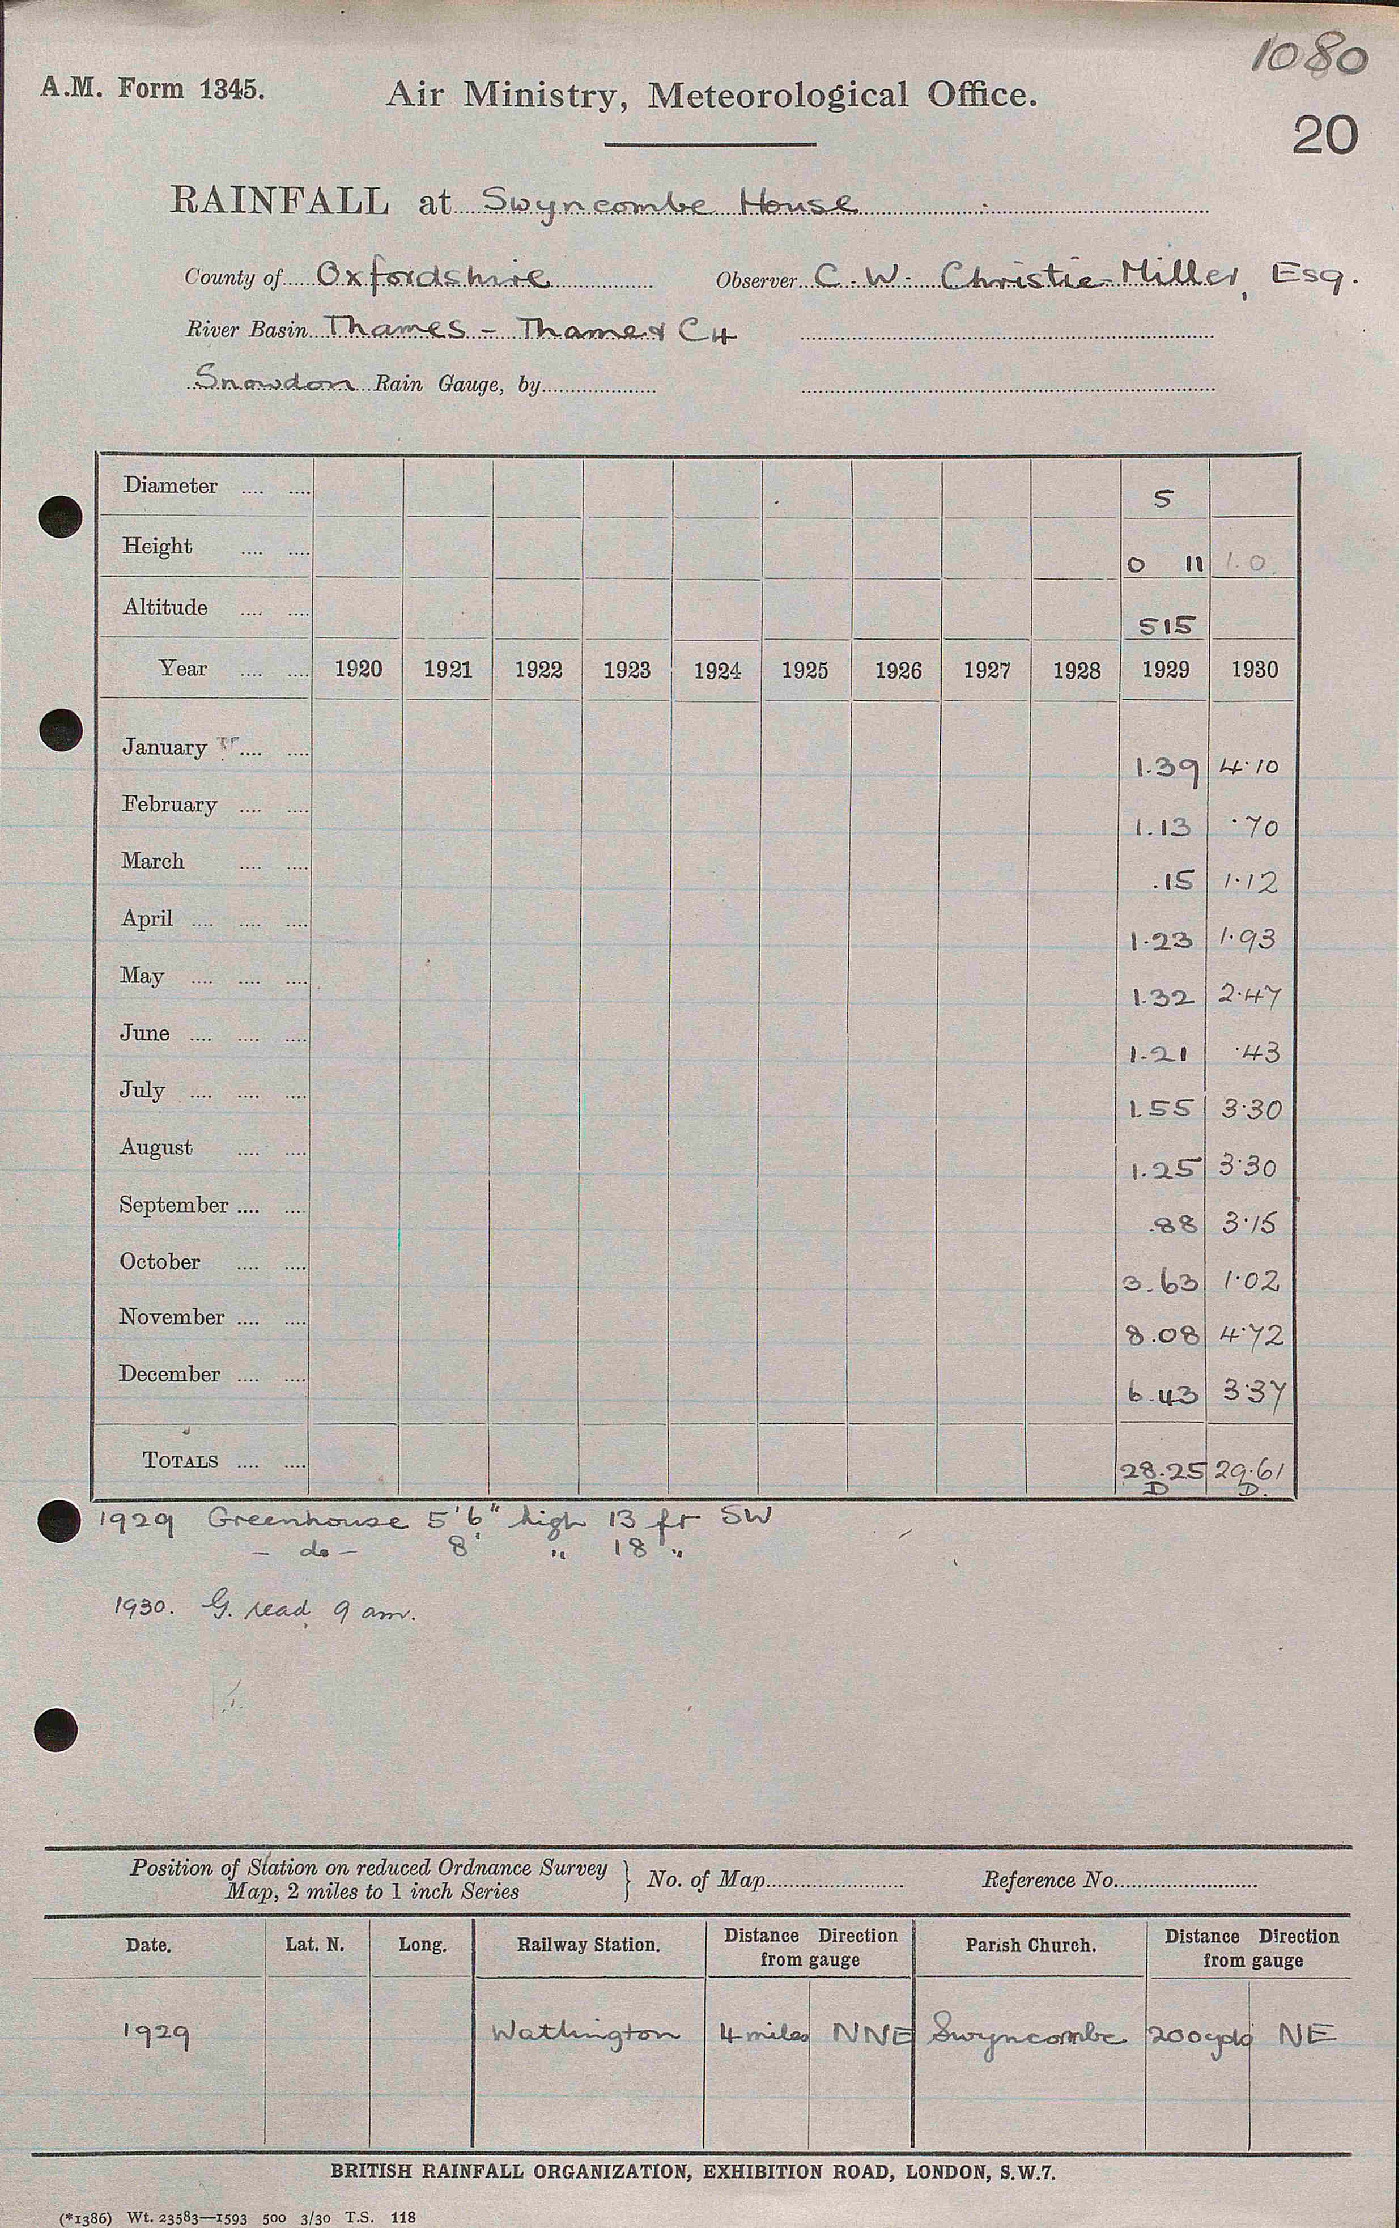 1080
A.M. Form 1345.
Air Ministry, Meteorological Office.
20
RAINFALL at Swyncombe House
County of Oxfordshire Observer C.W. Christie-Miller, Esq.
River Basin Thames - Thame & CH
Snowdon Rain Gauge, by
Diameter 5
Height 0 11 1.0
Altitude 515
Year 1920 1921 1922 1923 1924 1925 1926 1927 1928 1929 1930
January 1.39 4.10
February 1.13 .70
March .15 1.12
April 1.23 1.93
May 1.32 2.47
June 1.21 .43
July 1.55 3.30
August 1.25 3.30
September .88 3.15
October 3.63 1.02
November 8.08 4.72
December 6.43 3.37
TOTALS 28.25 29.61
D D.
1929 Greenhouse 5'6" high 13 ft SW
- do - 8' " 18 "
1930. G. read 9 am.
Position of Station on reduced Ordnance Survey
Map, 2 miles to 1 inch Series } No. of Map Reference No.
Date. Lat. N. Long. Railway Station. Distance Direction from gauge Parish Church. Distance Direction from gauge
1929 Watlington 4 miles NNE Swyncombe 200 yds NE
BRITISH RAINFALL ORGANIZATION, EXHIBITION ROAD, LONDON, S.W.7.
(*1386) Wt. 23583—1593 500 3/30 T.S. 118